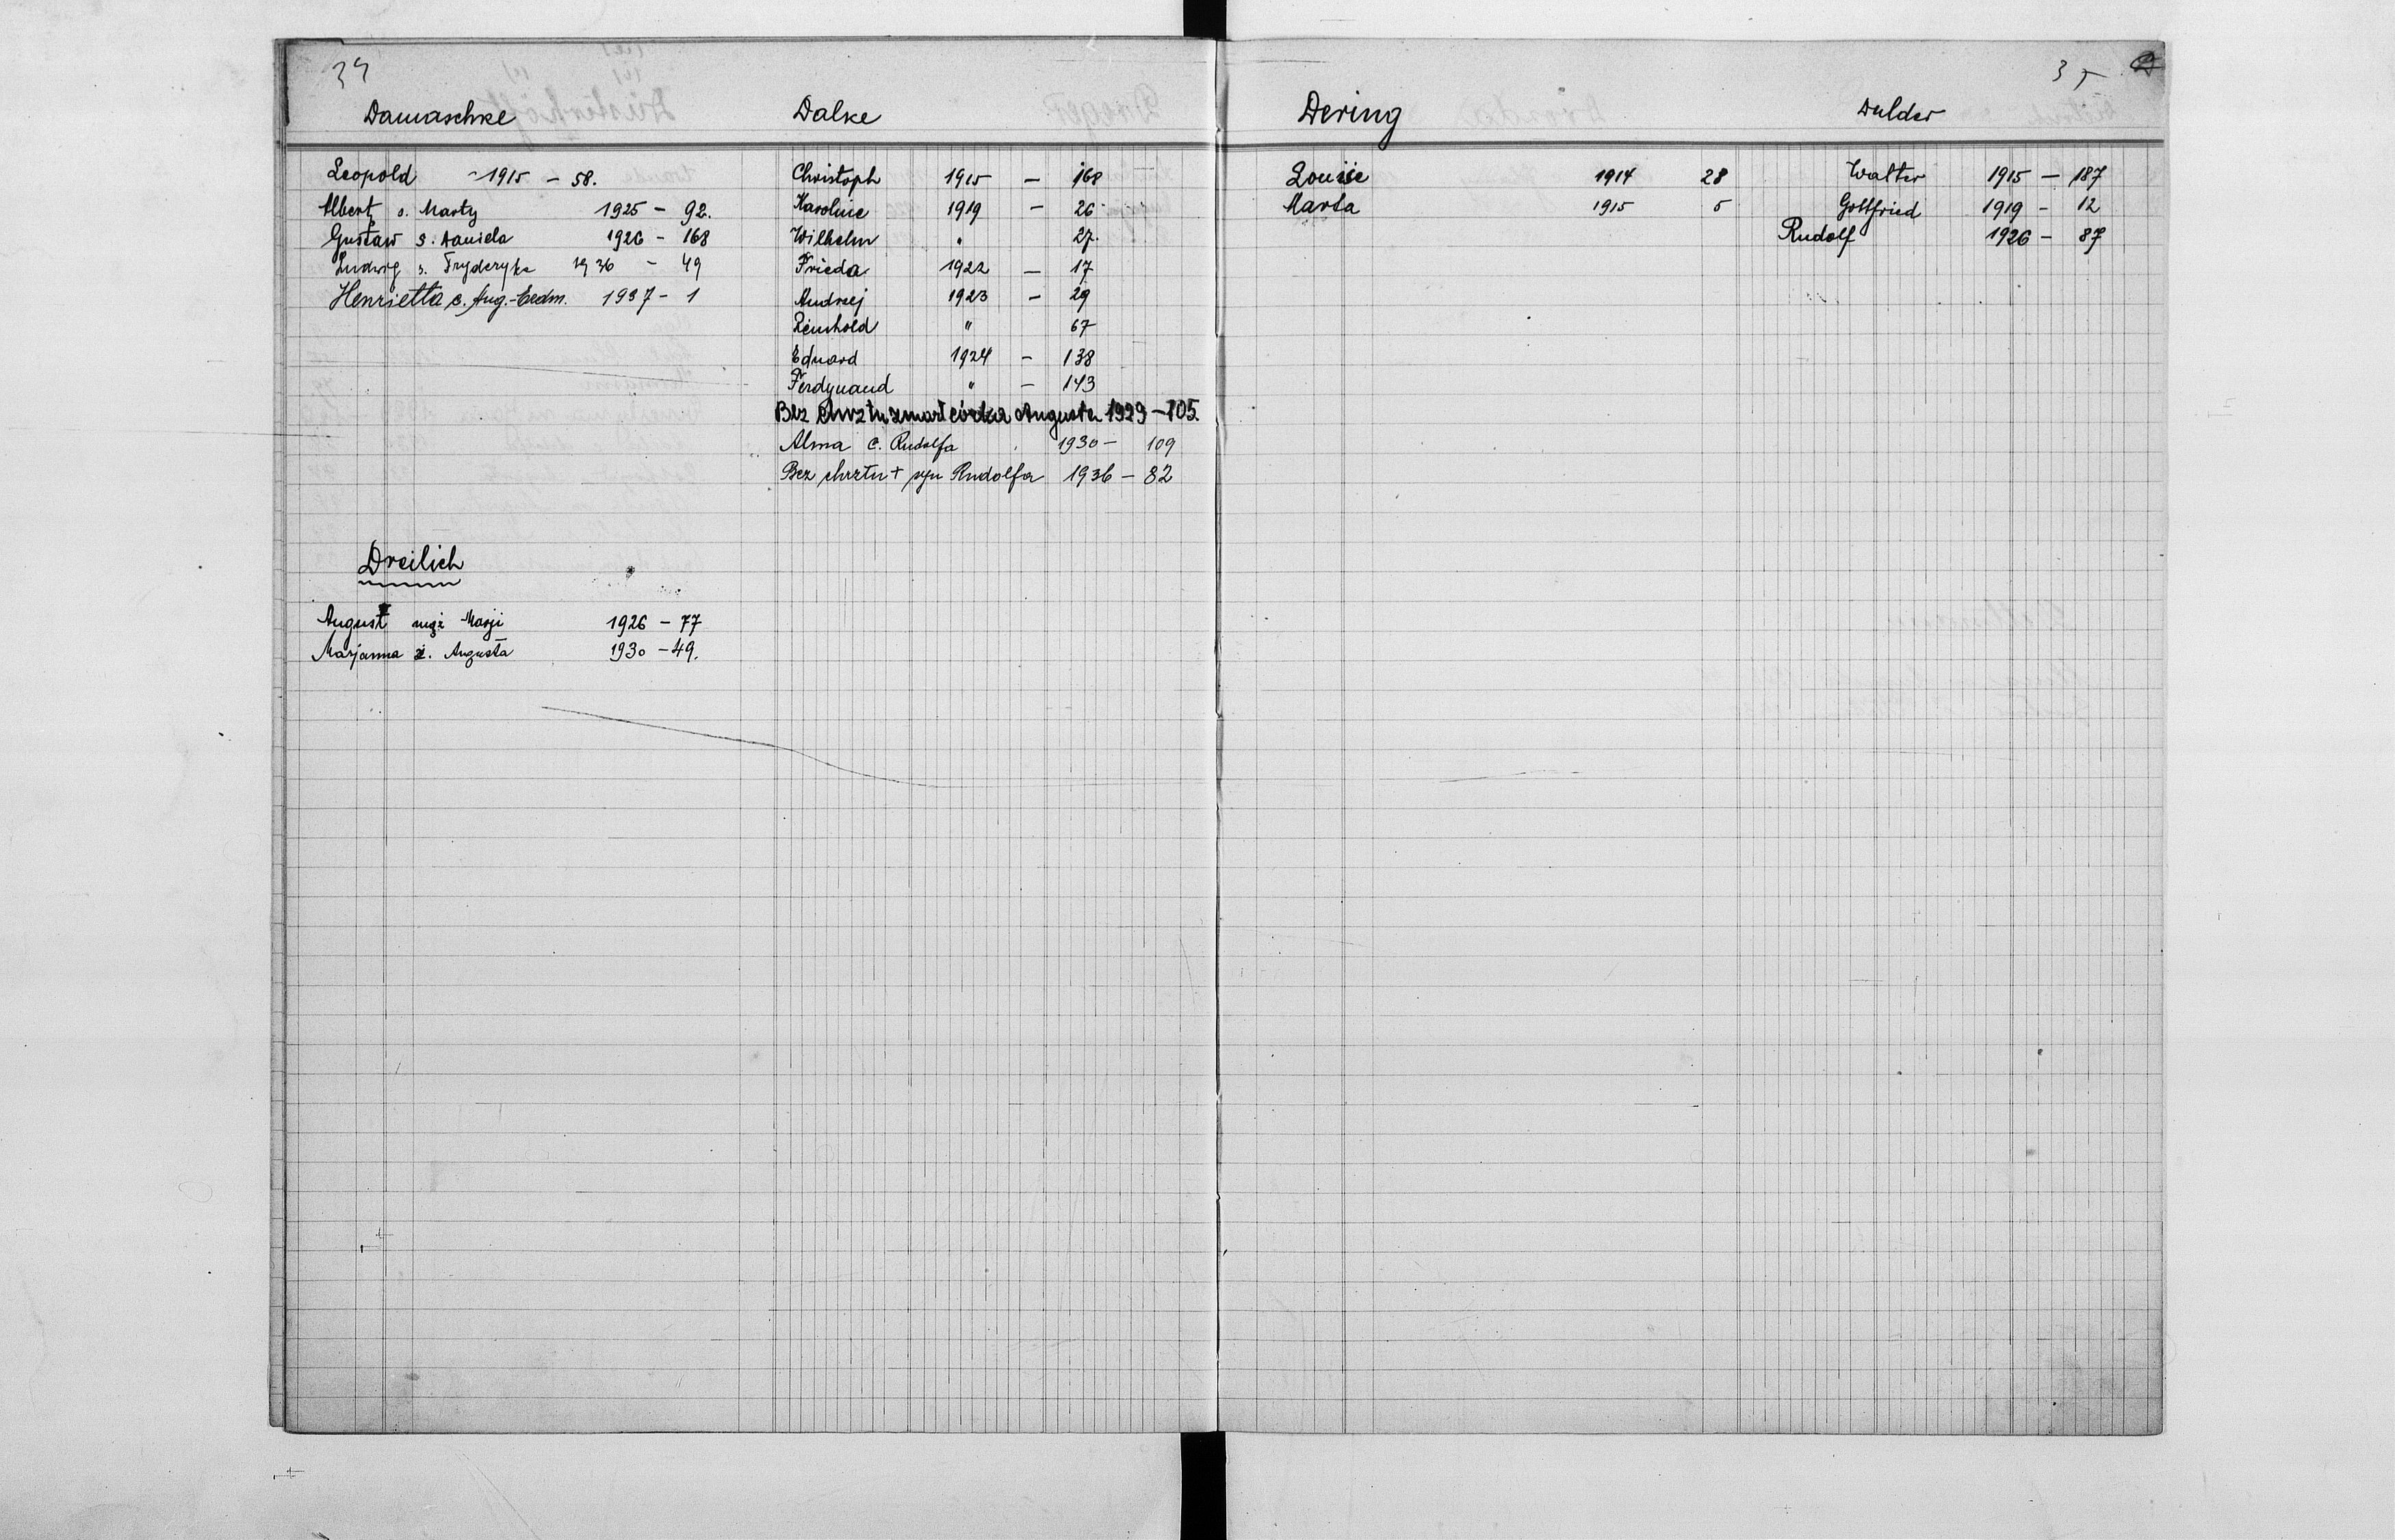 34
Damaschke
Leopold 1915 – 58.
Albert s. Marty 1925 – 92.
Gustaw s. Daniela 1926 – 168
Ludwig s. Fryderyka 1936 – 49
Henrietta c. Aug.-Erdm. 1937 – 1
Dreilich
August mąż Marji 1926 – 77
Marjanna ż. Augusta 1930 – 49.
Dalke
Christoph 1915 – 168
Karoline 1919 – 26
Wilhelm " 27.
Frieda 1922 – 17
Andrzej 1923 – 29
Reinhold " 67
Eduard 1924 – 138
Ferdynand " – 143
Bez chrztu zmarł córka Augusta 1929 – 105.
Alma c. Rudolfa 1930 – 109
Bez chrztu + syn Rudolfa 1936 – 82
35 D
Dering
Louise 1914 28
Marta 1915 5
Dulder
Walter 1915 – 187
Gottfried 1919 – 12
Rudolf 1926 – 87